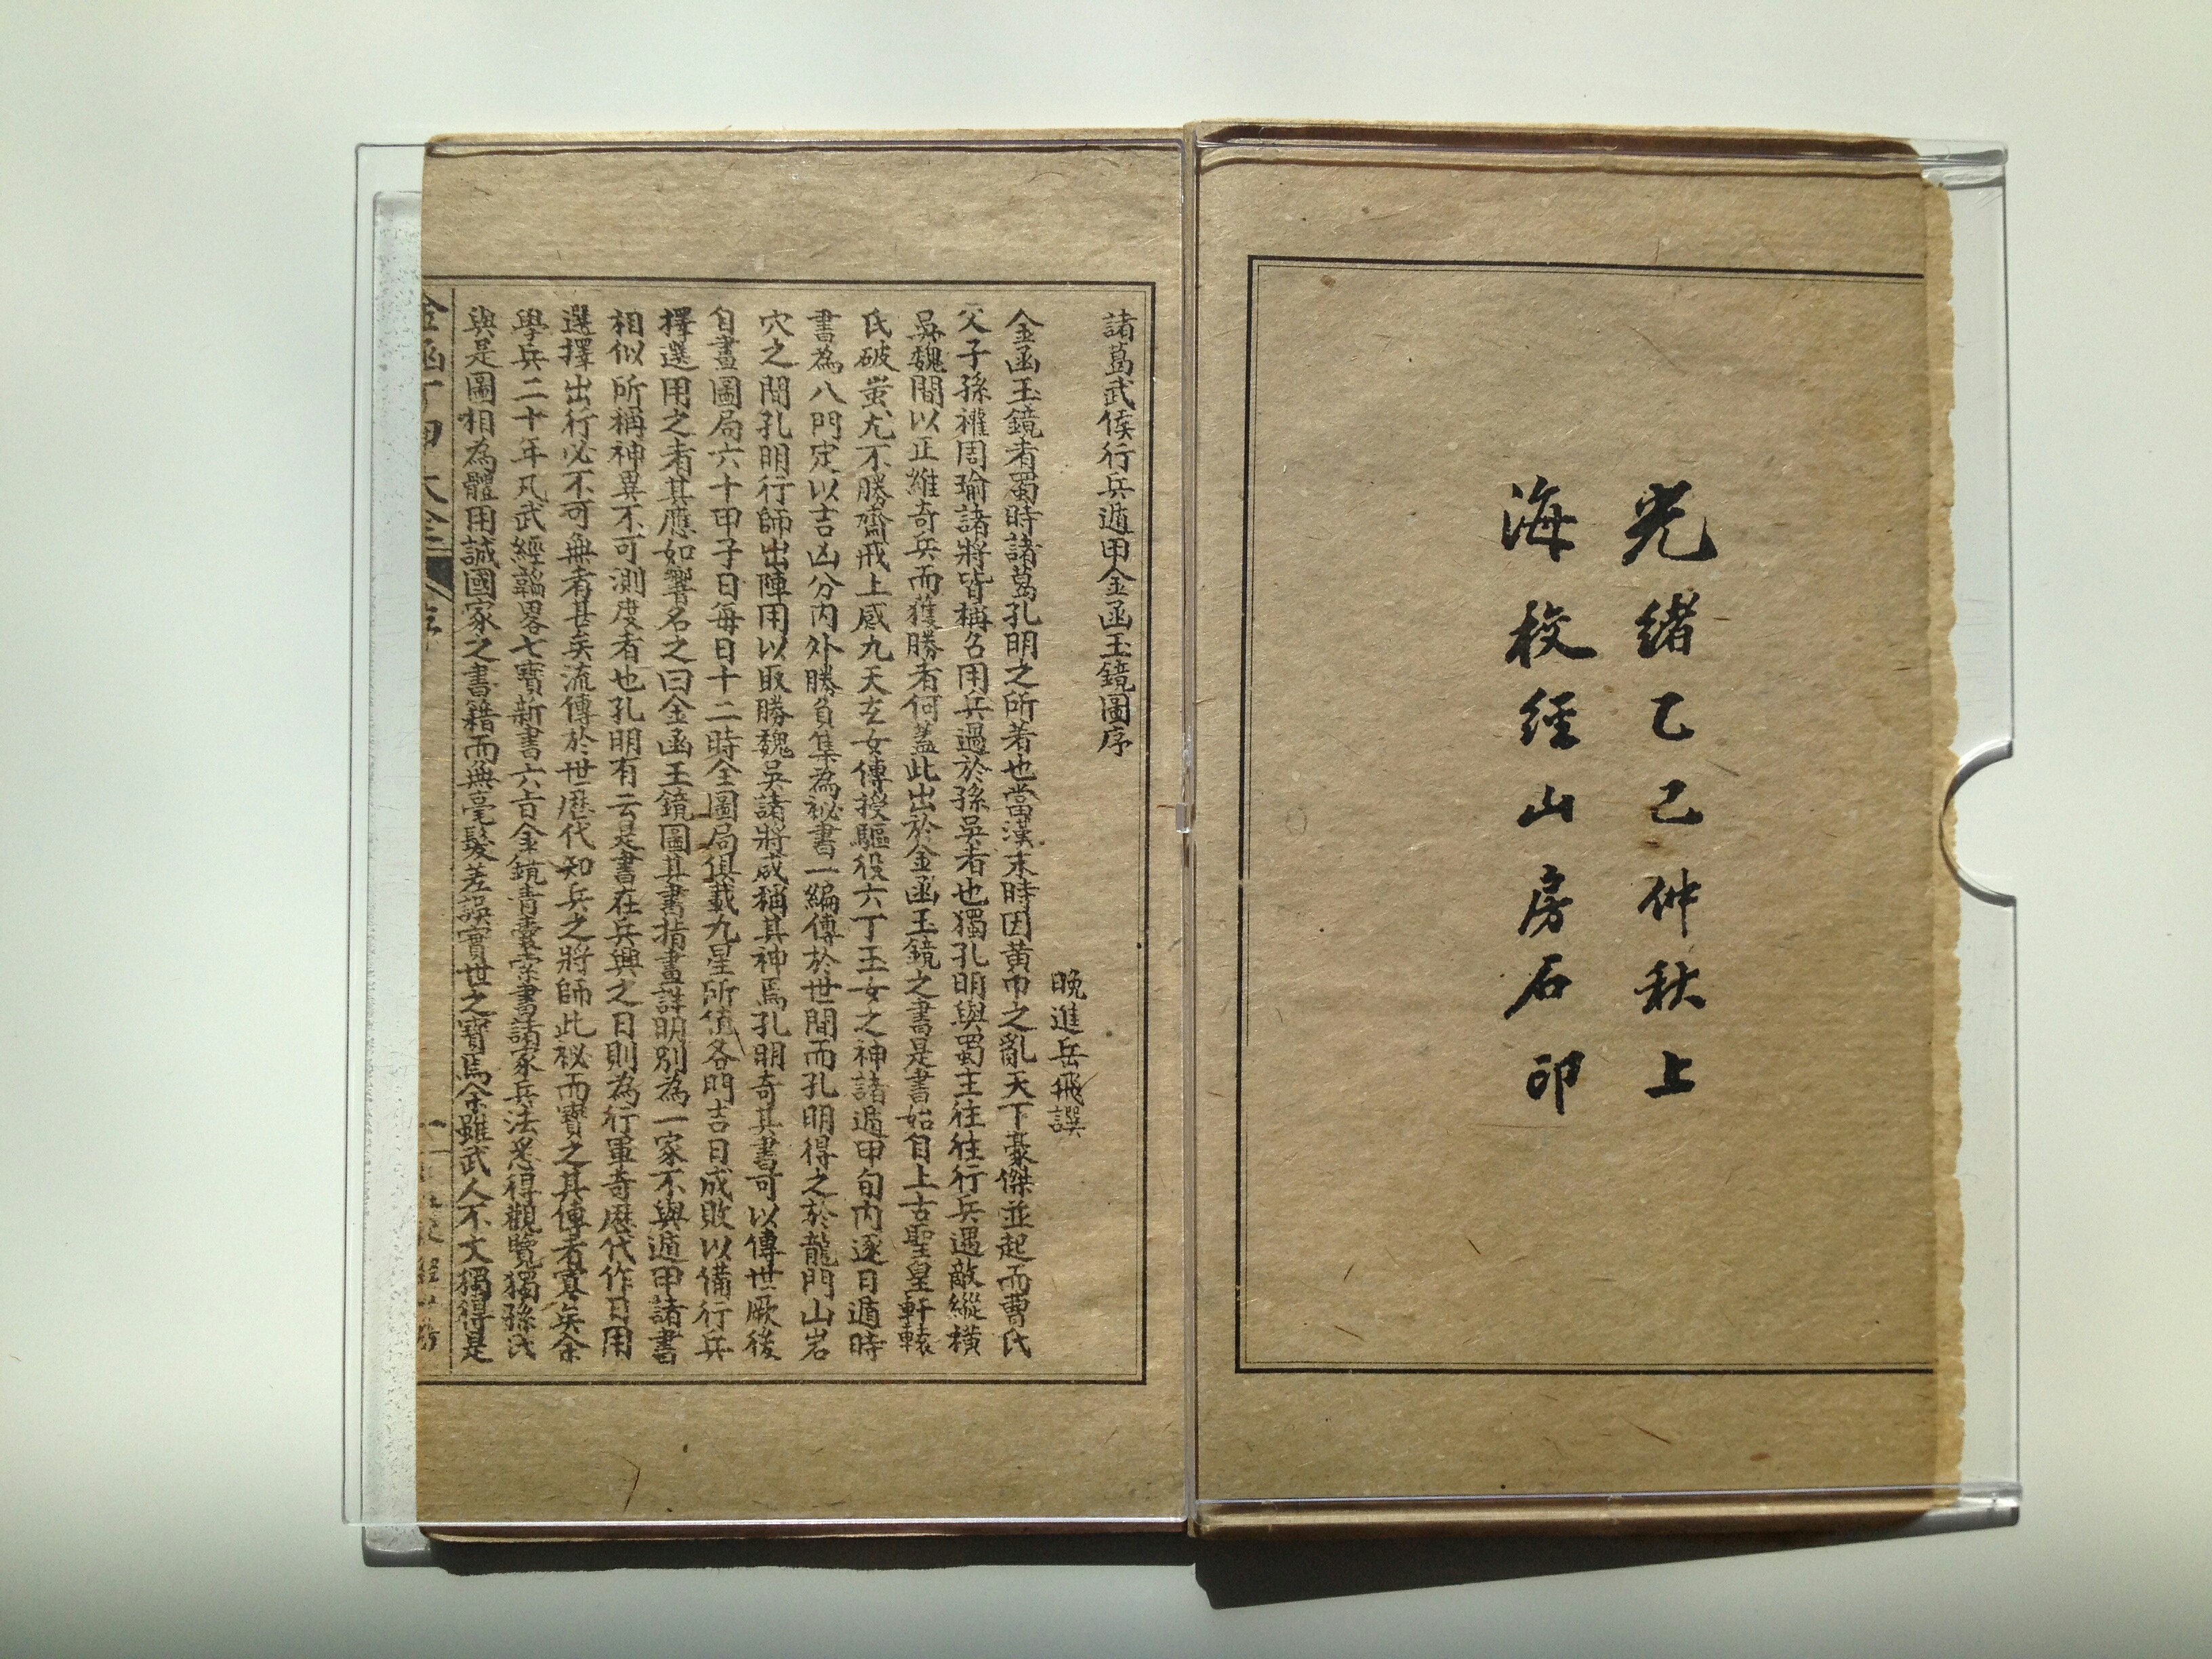 光緒乙巳仲秋上
海校經山房石印
諸葛武侯行兵遁甲金函玉鏡圖序
晚進岳飛譔
金函玉鏡者蜀時諸葛孔明之所著也當漢末時因黃巾之亂天下豪傑並起而曹氏
父子孫權周瑜諸將皆稱名用兵過於孫吳者也獨孔明與蜀主往往行兵遇敵縱橫
吳魏間以正維奇兵而獲勝者何蓋此出於金函玉鏡之書是書始自上古聖皇軒轅
氏破蚩尤不勝齋戒上感九天玄女傳授驅役六丁玉女之神諸遁甲旬內逐日遁時
書為八門定以吉凶分內外勝負集為祕書一編傳於世間而孔明得之於龍門山岩
穴之間孔明行師出陣用以取勝魏吳諸將咸稱其神焉孔明奇其書可以傳世厥後
自畫圖局六十甲子日每日十二時全圖局俱載九星所值各門吉日成敗以備行兵
擇選用之者其應如響名之曰金函玉鏡圖其書指畫詳明別為一家不與遁甲諸書
相似所稱神異不可測度者也孔明有云是書在兵興之日則為行軍奇歷代作日用
選擇出行必不可無者甚矣流傳於世歷代知兵之將師此祕而寶之其傳者寡矣余
學兵二十年凡武經韜畧七寶新書六吉金鏡青囊素書諸家兵法悉得觀覽獨孫氏
與是圖相為體用誠國家之書籍而無毫髮差誤實世之寶焉余雖武人不文獨得是